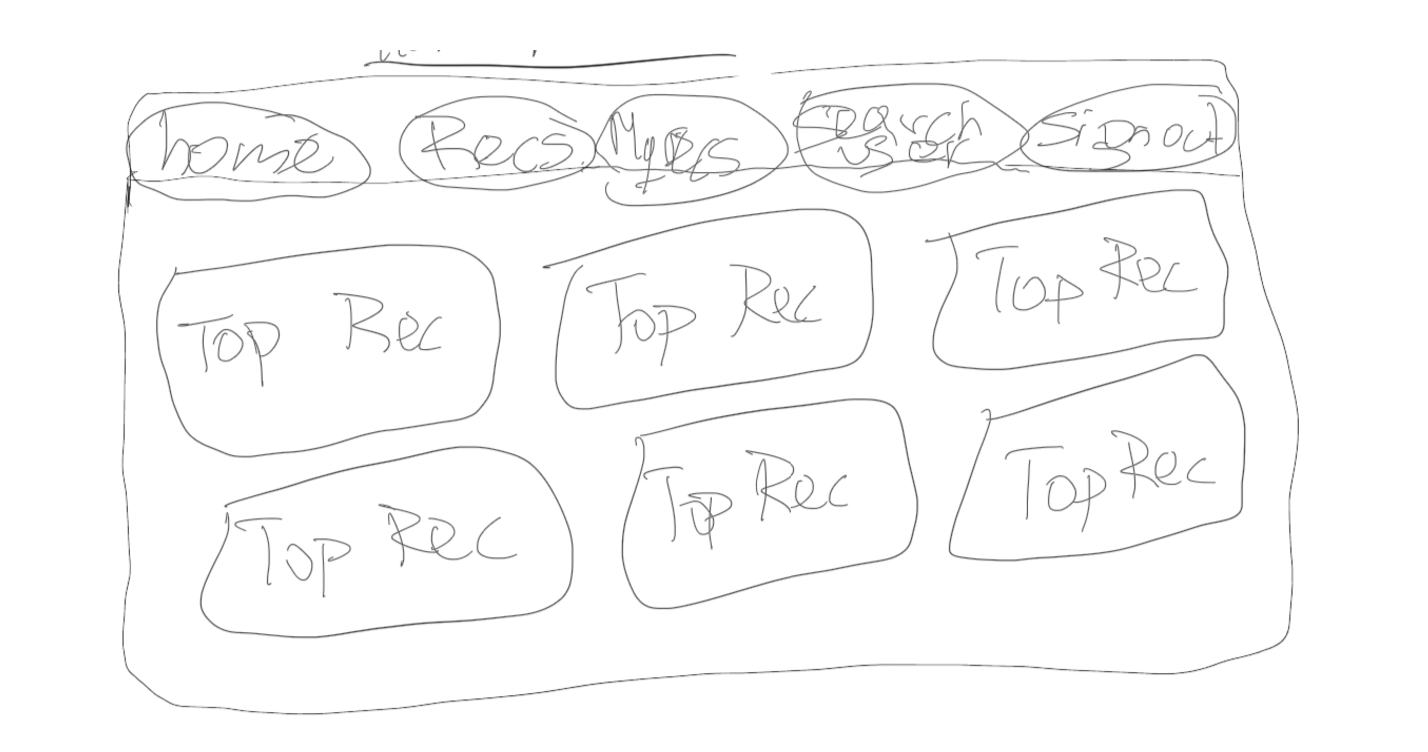 home Recs. My Recs Search user Sign out
Top Rec Top Rec Top Rec
Top Rec Top Rec Top Rec